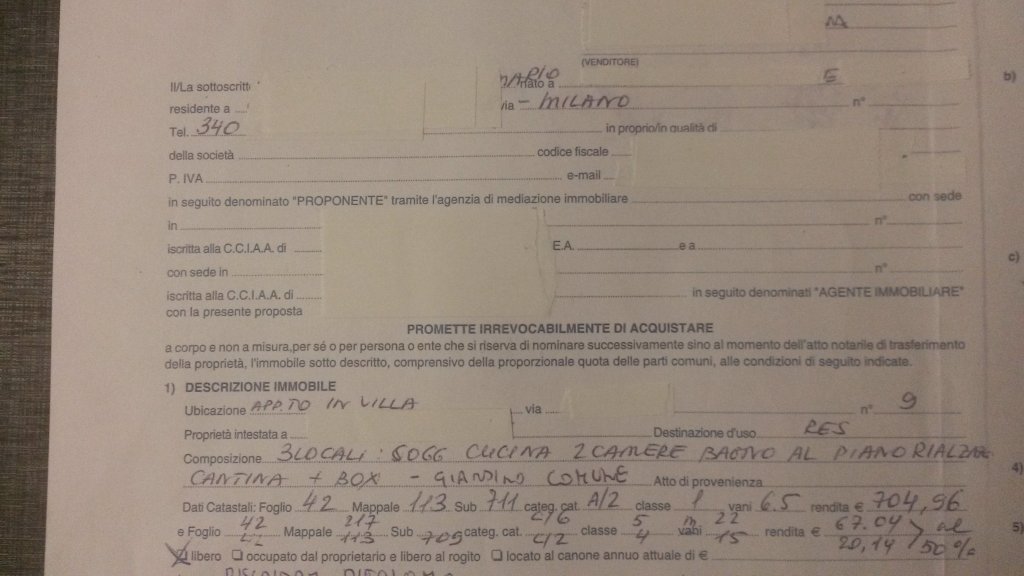 (VENDITORE)
Il/La sottoscritt nato a E
residente a via - MILANO n°
Tel. 340 in proprio/in qualità di
della società codice fiscale
P. IVA e-mail
in seguito denominato "PROPONENTE" tramite l'agenzia di mediazione immobiliare con sede
in n°
iscritta alla C.C.I.A.A. di E.A. e a
con sede in n°
iscritta alla C.C.I.A.A. di in seguito denominati "AGENTE IMMOBILIARE"
con la presente proposta
PROMETTE IRREVOCABILMENTE DI ACQUISTARE
a corpo e non a misura,per sé o per persona o ente che si riserva di nominare successivamente sino al momento dell'atto notarile di trasferimento
della proprietà, l'immobile sotto descritto, comprensivo della proporzionale quota delle parti comuni, alle condizioni di seguito indicate.
1) DESCRIZIONE IMMOBILE
Ubicazione APP.TO IN VILLA via n° 9
Proprietà intestata a Destinazione d'uso RES
Composizione 3 LOCALI: SOGG CUCINA 2 CAMERE BAGNO AL PIANO
CANTINA + BOX - GIARDINO COMUNE Atto di provenienza
Dati Catastali: Foglio 42 Mappale 113 Sub 711 categ. cat. A/2 classe 1 vani 6.5 rendita € 704,96
e Foglio 42 Mappale 217 Sub categ. cat. C/6 classe 5 vani m 22 rendita € 67.04 al
113 709 C/2 4 15 20,14 50%
libero occupato dal proprietario e libero al rogito locato al canone annuo attuale di €
b)
c)
4)
5)